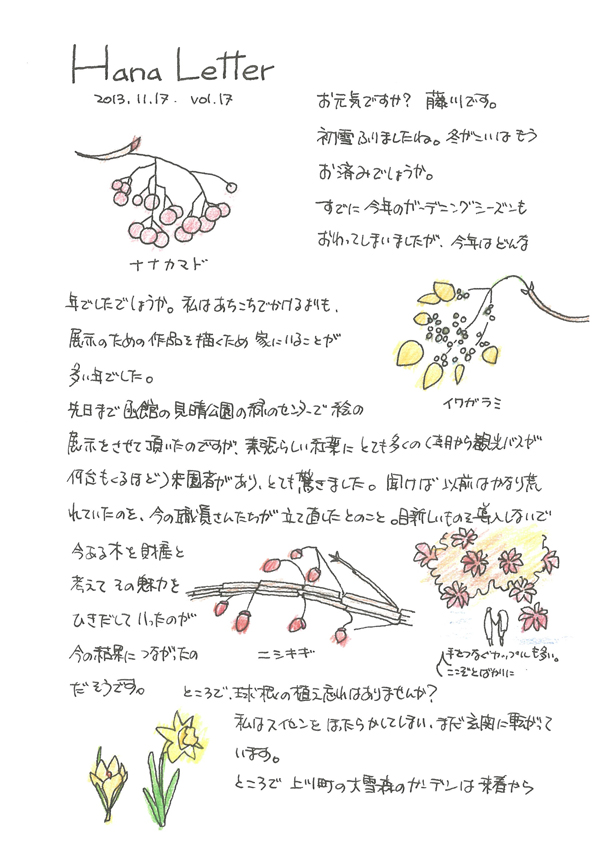 Hana Letter
2013.11.17. vol.17
お元気ですか? 藤川です。
初雪ふりましたね。冬がこいはもう
お済みでしょうか。
すでに今年のガーデニングシーズンも
おわってしまいましたが、今年はどんな
ナナカマド
年でしたでしょうか。私はあちこちでかけるよりも、
展示のための作品を描くため 家にいることが
多い年でした。
イワガラミ
先日まで函館の見晴公園の緑のセンターで絵の
展示をさせて頂いたのですが、素晴らしい紅葉にとても多くの(朝から観光バスが
何台もくるほど)来園者があり、とても驚きました。聞けば以前はかなり荒
れていたのを、今の職員さんたちが立て直したとのこと。目新しいものを導入しないで
今ある木を財産と
考えてその魅力を
ひきだしていったのが
今の結果につながったの
だそうです。
ニシキギ
手をつなぐカップルも多い。
ここぞとばかりに
ところで、球根の植え忘れはありませんか?
私はスイセンをほったらかしてしまい、まだ玄関に転がって
います。
ところで 上川町の大雪森のガーデンは来春から